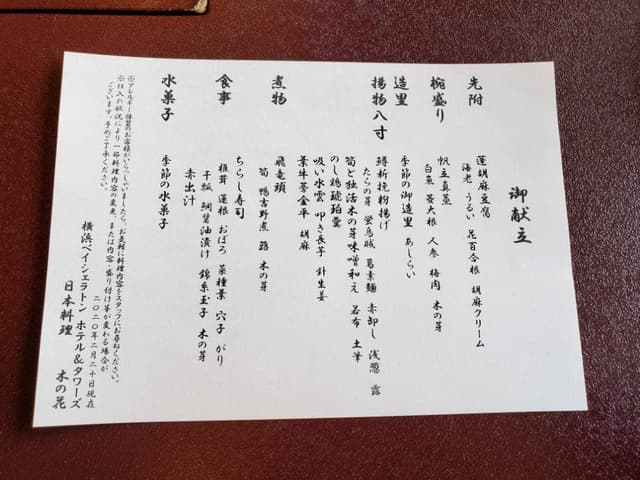 御献立
先附
蓮胡麻豆腐
海老 うるい 花百合根 胡麻クリーム
椀盛り
帆立真薯
白魚 莟大根 人参 梅肉 木の芽
造里
季節の御造里 あしらい
揚物八寸
鱚新挽粉揚げ
たらの芽 蛍烏賊 葛素麺 赤卸し 浅葱 露
筍と独活木の芽味噌和え 若布 土筆
のし鶏琥珀羹
吸い水雲 叩き長芋 針生姜
葉牛蒡金平 胡麻
煮物
飛竜頭
筍 鴨吉野煮 蕗 木の芽
食事
ちらし寿司
椎茸 蓮根 おぼろ 菜種葉 穴子 がり
干瓢 鯛醤油漬け 錦糸玉子 木の芽
赤出汁
水菓子
季節の水菓子
※アレルギー体質のお客様がいらっしゃいましたら、お気軽に料理内容をスタッフにお尋ねください。
※仕入れ状況により一部料理内容の変更、または内容・盛り付け等が変わる場合が
ございます。予めご了承ください。
二〇二〇年二月二十日現在
横浜ベイシェラトン ホテル&タワーズ
日本料理 木の花